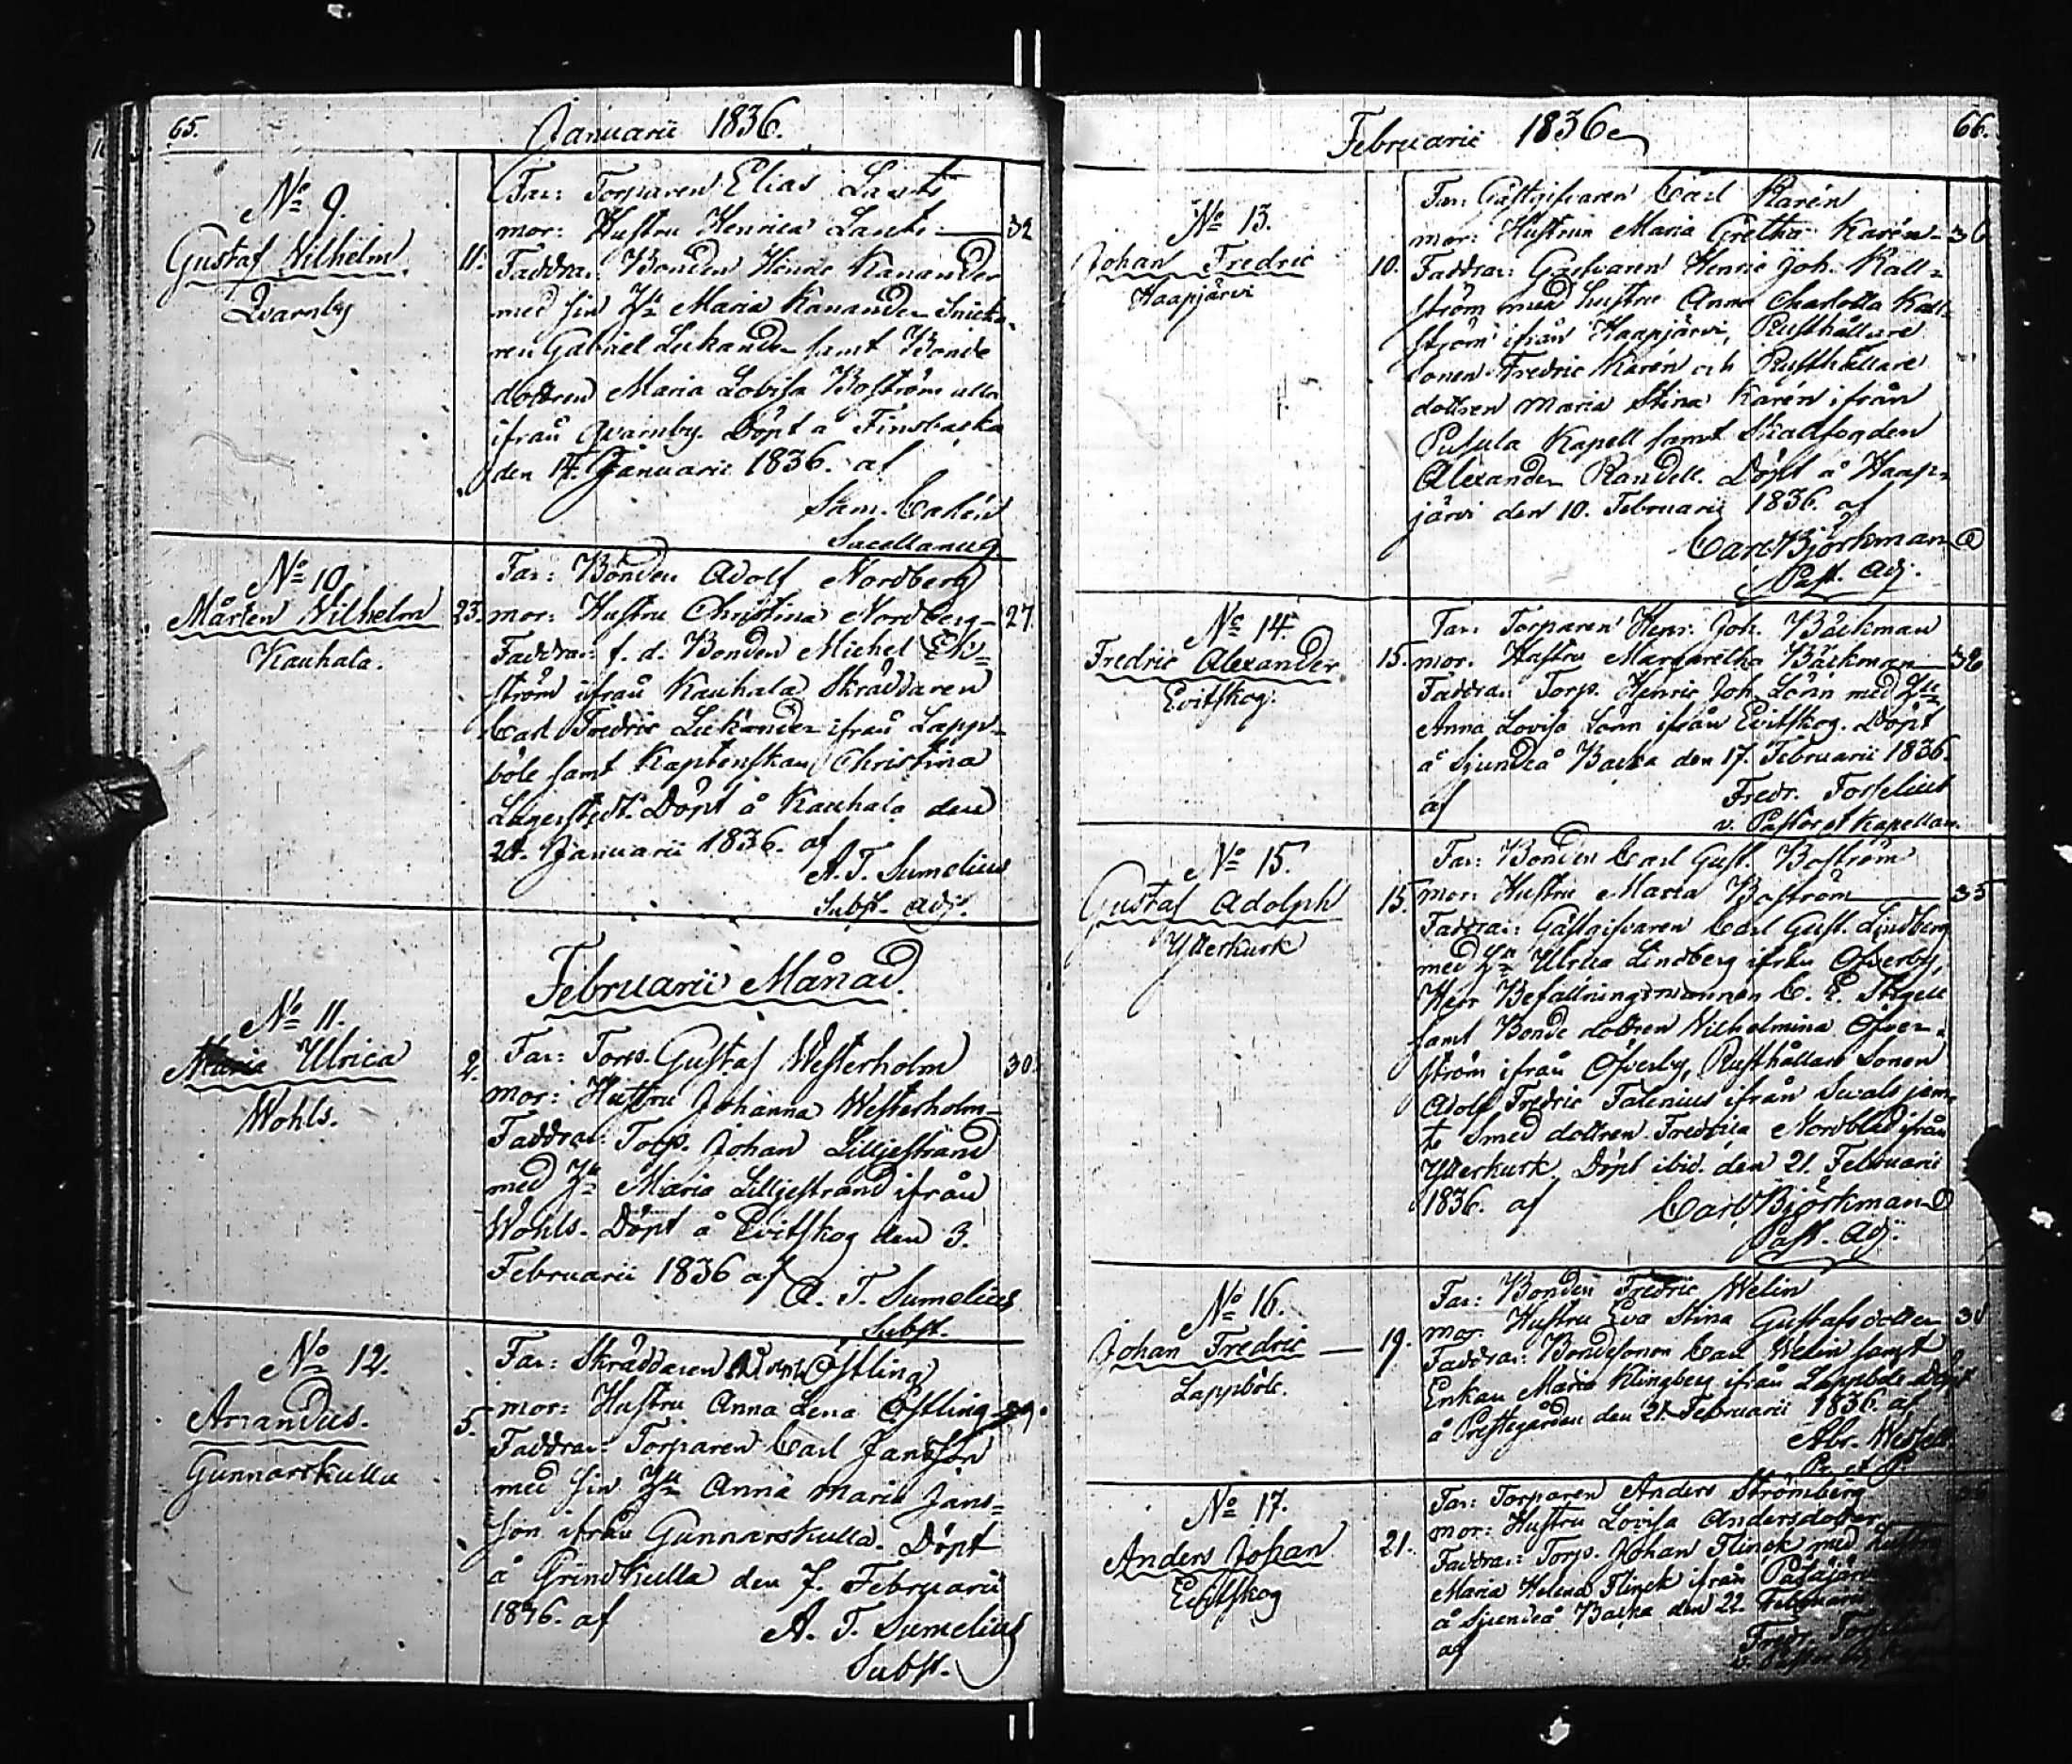 65.
Januarii 1836.
No 9.
Gustaf Wilhelm.
Qvarnby
11.
Far: Torparen Elias
mor: Hustru Henrica 32
Faddrar: Bonden Henric Kanander
med sin Hu Maria Kanander Snicka-
ren Gabriel Lekander samt Bonde
dottren Maria Lovisa Boström alla
ifrån Qvarnby. Döpt å Finsbacka
den 14. Januarii 1836. af
Sam. Calién
Sacellanus.
No 10.
Mårten Wilhelm
Kauhala.
23.
Far: Bonden Adolf Nordberg
mor: Hustru Christina Nordberg 27
Faddrar: f. d. Bonden Michel Ek-
ström ifrån Kauhala Skräddaren
Carl Fredric Lekander ifrån Lapp-
böle samt Kaptenskan Christina
Lagerstedt. Döpt å Kauhala den
Januarii 1836. af
A. T. Sumelius
Subst. Adj.
Februarii Månad.
No 11.
Maria Ulrica
Wohls.
2.
Far: Torp. Gustaf Westerholm 30.
mor: Hustru Johanna Westerholm
Faddrar: Torp. Johan Lilljestrand
med Hu Maria Lilljestrand ifrån
Wohls. Döpt å Evitskog den 3.
Februarii 1836 af
A. T. Sumelius
Subst.
No 12.
Amandus.
Gunnarskulla
5.
Far: Skräddaren Östling
mor: Hustru Anna Lena Östling 29.
Faddrar: Torparen Carl Jansson
med sin Hu Anna Maria Jans-
son ifrån Gunnarskulla. Döpt
å Grindkulla den 7. Februarii
1836. af
A. T. Sumelius
Subst.
Februarii 1836
66.
No 13.
Johan Fredric
Haapjärvi
10.
Far: Gästgifvaren Carl Karén
mor: Hustrun Maria Gretha Karén 36
Faddrar: Garfvaren Henric Joh. Käll-
ström med hustru Anna Charlotta Käll-
ström ifrån Haapjärvi, Rusthållare
sonen Fredric Karén och Rusthållare
dottren Maria Stina Karén ifrån
Pusula Kapell samt Skallfogden
Alexander Randell. Döpt å Haap-
järvi den 10. Februarii 1836. af
Carl Björkman
Past. Adj.
No 14.
Fredric Alexander
Evitskog.
15.
Far: Torparen Henr. Joh. Bäckman
mor: Hustru Margaretha Bäckman 32
Faddrar: Torp. Henric Joh. Lönn med Hu
Anna Lovisa Lönn ifrån Evitskog. Döpt
å Sjundeå Backa den 17. Februarii 1836.
af
Fredr. Forselius
v. Pastor et Kapellan.
No 15.
Gustaf Adolph
Ytterkurk
15.
Far: Bonden Carl Gust. Boström
mor: Hustru Maria Boström 35
Faddrar: Gästgifvaren Carl Gust. Lindberg
med Hu Ulrica Lindberg ifrån Öfverby,
Herr Befallningsmannen C. E. Stigell
samt Bonde dottren Wilhelmina Öfver-
ström ifrån Öfverby, Rusthållare Sonen
Adolf Fredric Talenius ifrån Svals jem-
te Smed dottren Fredrica Nordblad ifrån
Ytterkurk. Döpt ibid. den 21. Februarii
1836. af
Carl Björkman
Past. Adj.
No 16.
Johan Fredric
Lappböle.
19.
Far: Bonden Fredric Welin
mor: Hustru Eva Stina Gustafsdotter
Faddrar: Bondesonen Carl Welin samt
Enkan Maria Klingberg ifrån Lappböle. Döpt
å Prestegården den 21. Februarii 1836. af
Abr.
No 17.
Anders Johan
Evitskog
21.
Far: Torparen Anders Strömberg
mor: Hustru Lovisa Andersdotter
Faddrar: Torp. Johan Flinck med hustru
Maria Helena Flinck ifrån
å Sjundeå Backa den 22. Februarii
af
Fredr. Forselius